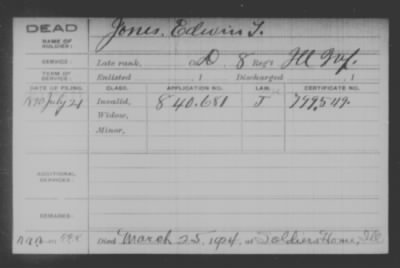 DEAD
NAME OF SOLDIER: Jones, Edwin T.
SERVICE: Late rank, Co. D 8 Reg't Ill Inf.
TERM OF SERVICE: Enlisted , 1 Discharged , 1
DATE OF FILING. CLASS. APPLICATION NO. LAW. CERTIFICATE NO.
1890 July 21 Invalid, 840.681 J 799.549.
Widow,
Minor,
ADDITIONAL SERVICES:
REMARKS:
Died March 25, 1914, at Soldiers Home, Ill